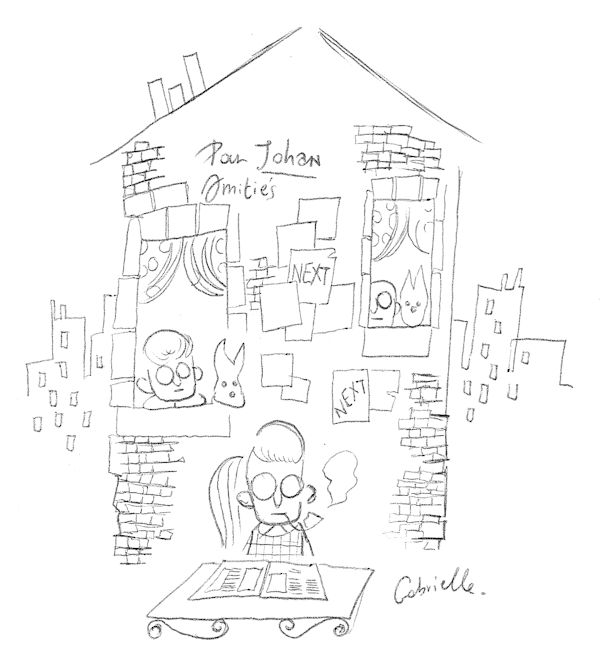 Pour Johan
Amitiés
NEXT
NEXT
Gabrielle.